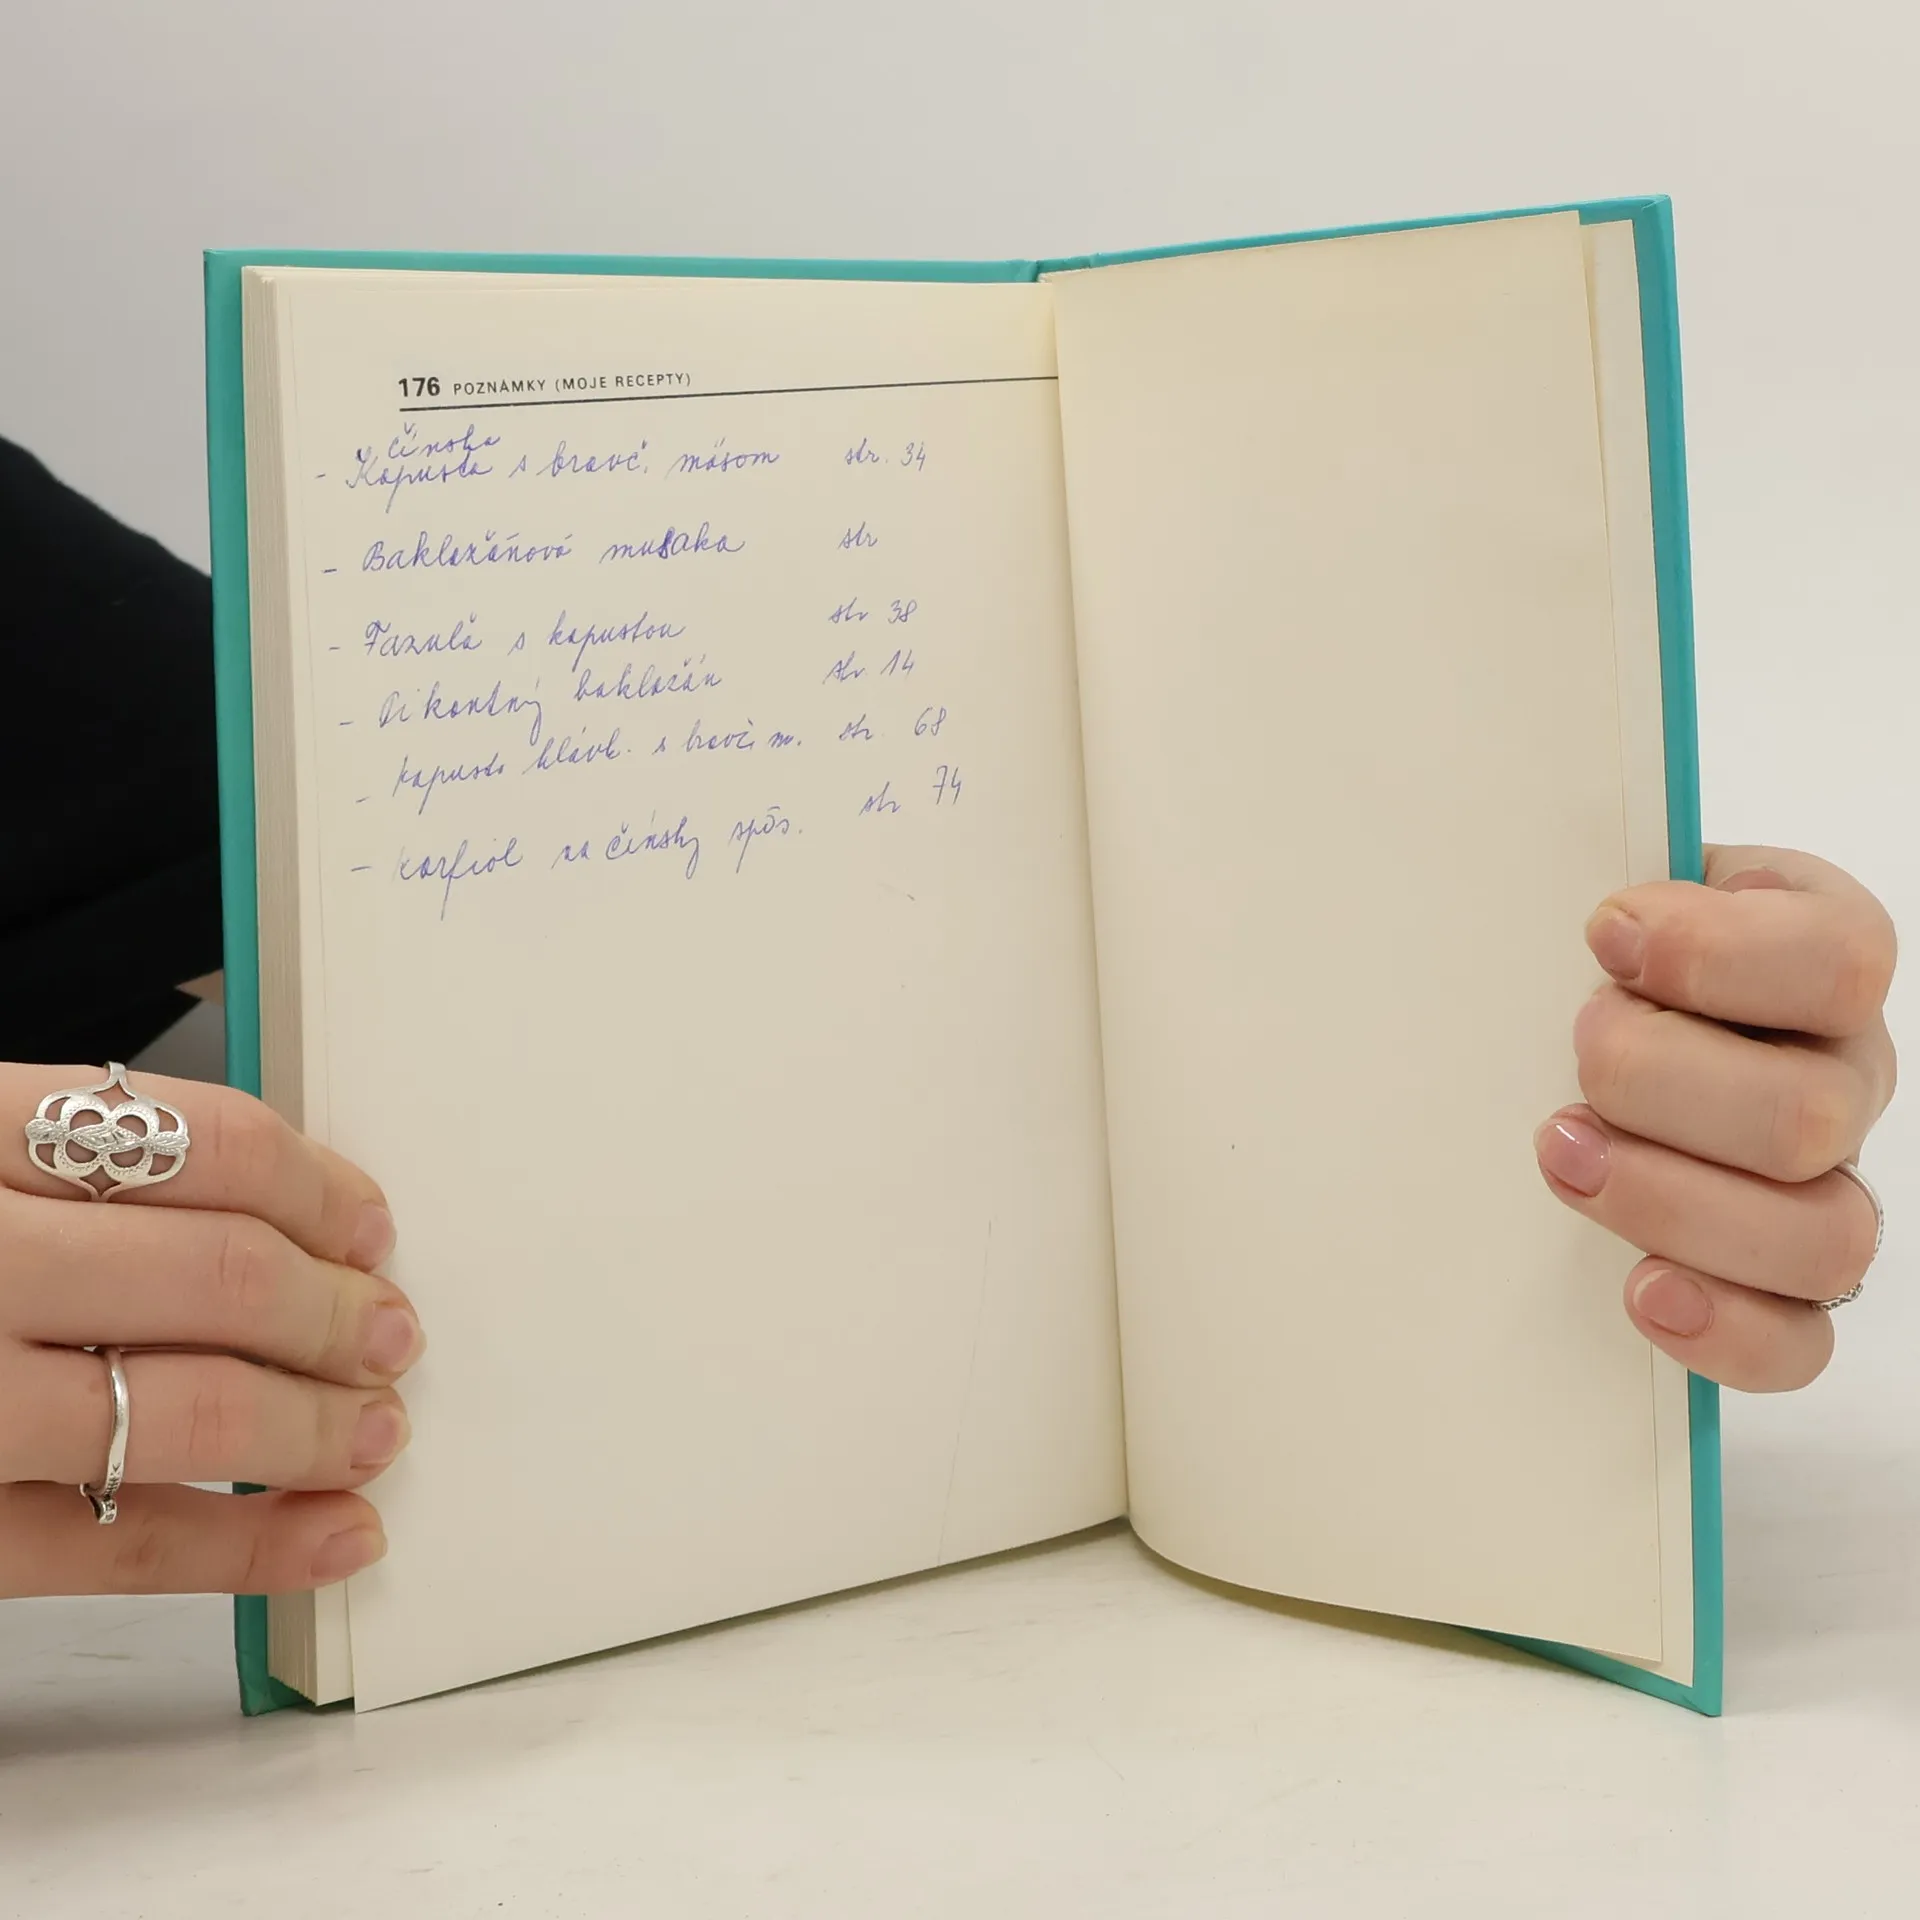 176 POZNÁMKY (MOJE RECEPTY)
čínska
- Kapusta s bravč. mäsom str. 34
- Baklažánová musaka str
- Fazuľa s kapustou str 38
- Pikantný baklažán str 14
- kapusta hlávk. s bravč. m. str. 68
- karfiol na čínsky spôs. str 74